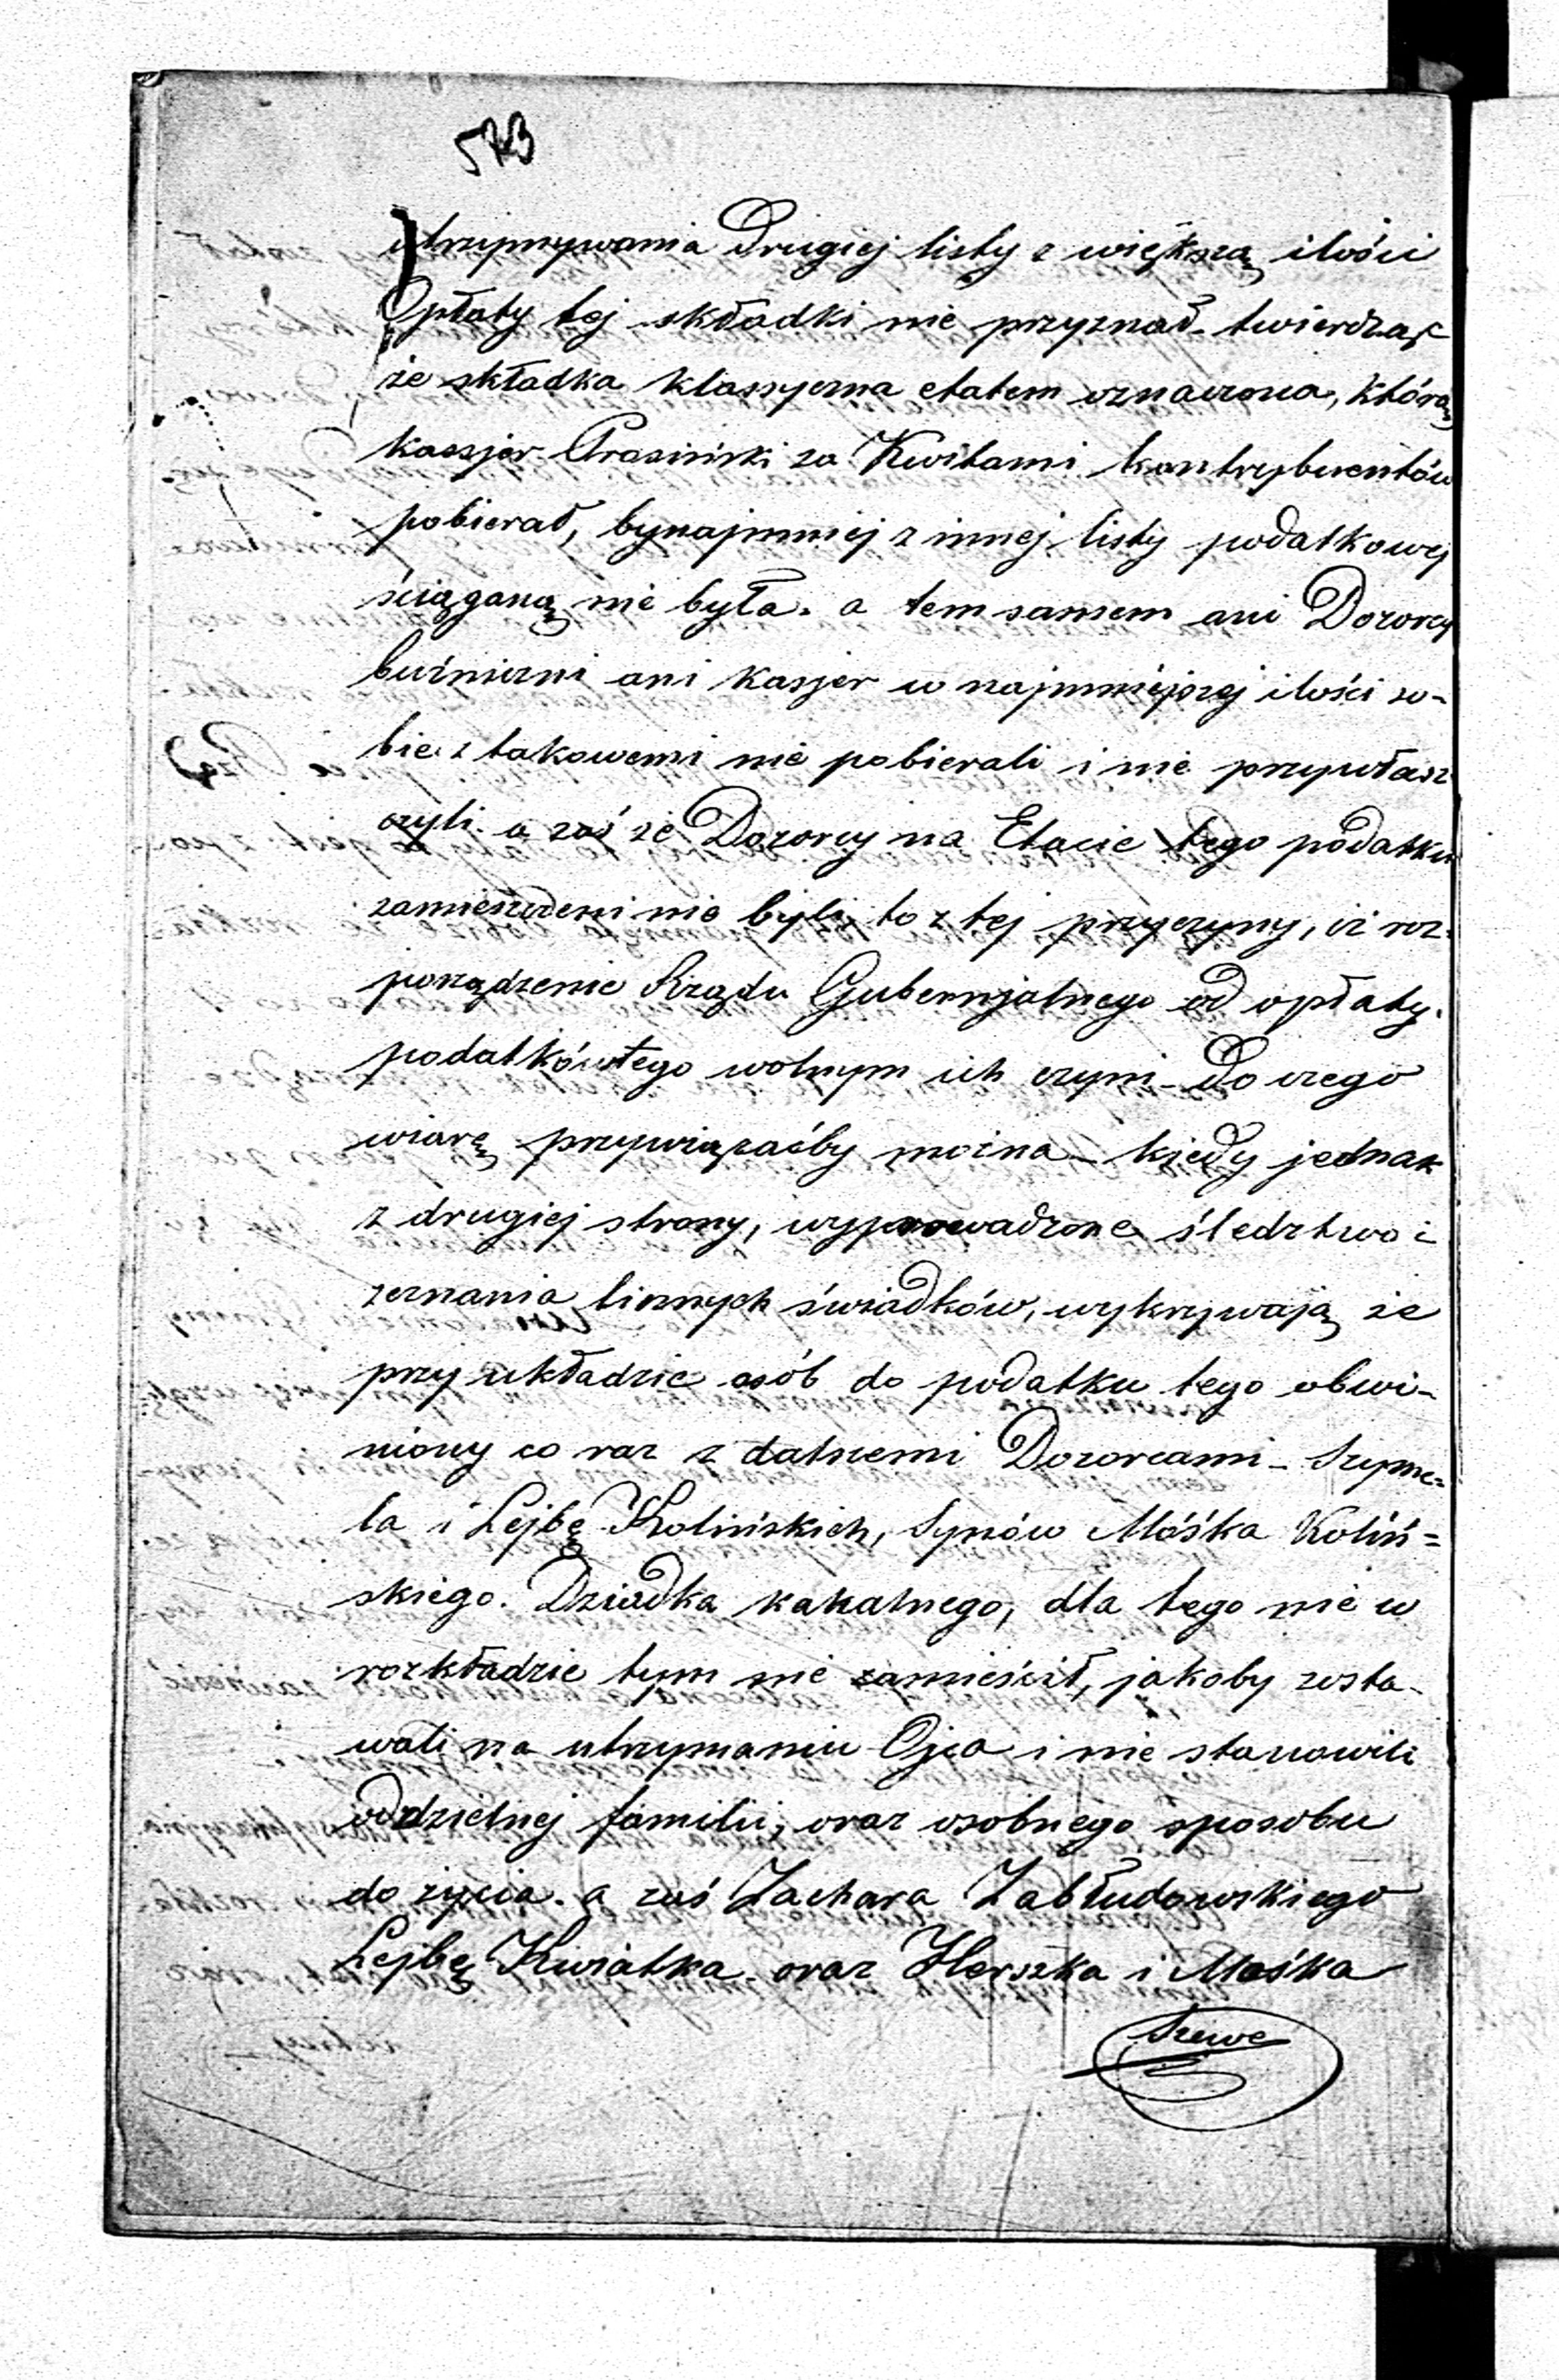 573
utrzymywania Drugiej listy z większą ilości
Opłaty tej składki nie przyznał. twierdząc
że składka klassyczna etatem oznaczona, którą
kassjer Prasiński za Kwitami kontrybuentów
pobierał, bynajmniej z innej listy podatkowej
ściąganą nie była. a tem samem ani Dozorcy
bużniczni ani kasjer w najmniejszej ilości so-
bie z takowemi nie pobierali i nie przywłasz
czyli. a zaś że Dozorcy na Etacie tego podatku
zamieszczeni nie byli, to z tej przyczyny, iż roz-
porządzenie Rządu Gubernjalnego od opłaty.
podatków tego wolnym ich czyni - Do czego
wiarę przywiązaćby można - kiedy jednak
z drugiej strony, wyprowadzone śledztwo i
zeznania licznych świadków, wykrywają że
przy układzie osób do podatku tego obwi-
niony co raz z dalszemi Dozorcami - Szyme=
la i Lejbę Kolińskich, Synów Mośka Koliń=
skiego. Dziadka kahalnego, dla tego nie w
rozkładzie tym nie zamieścił, jakoby zosta-
wali na utrzymaniu Ojca i nie stanowili
oddzielnej familii, oraz osobnego sposobu
do życia. a zaś Zachara Zabłudowskiego
Lejbę Kwiatka. oraz Herszka i Mośka
Szewe